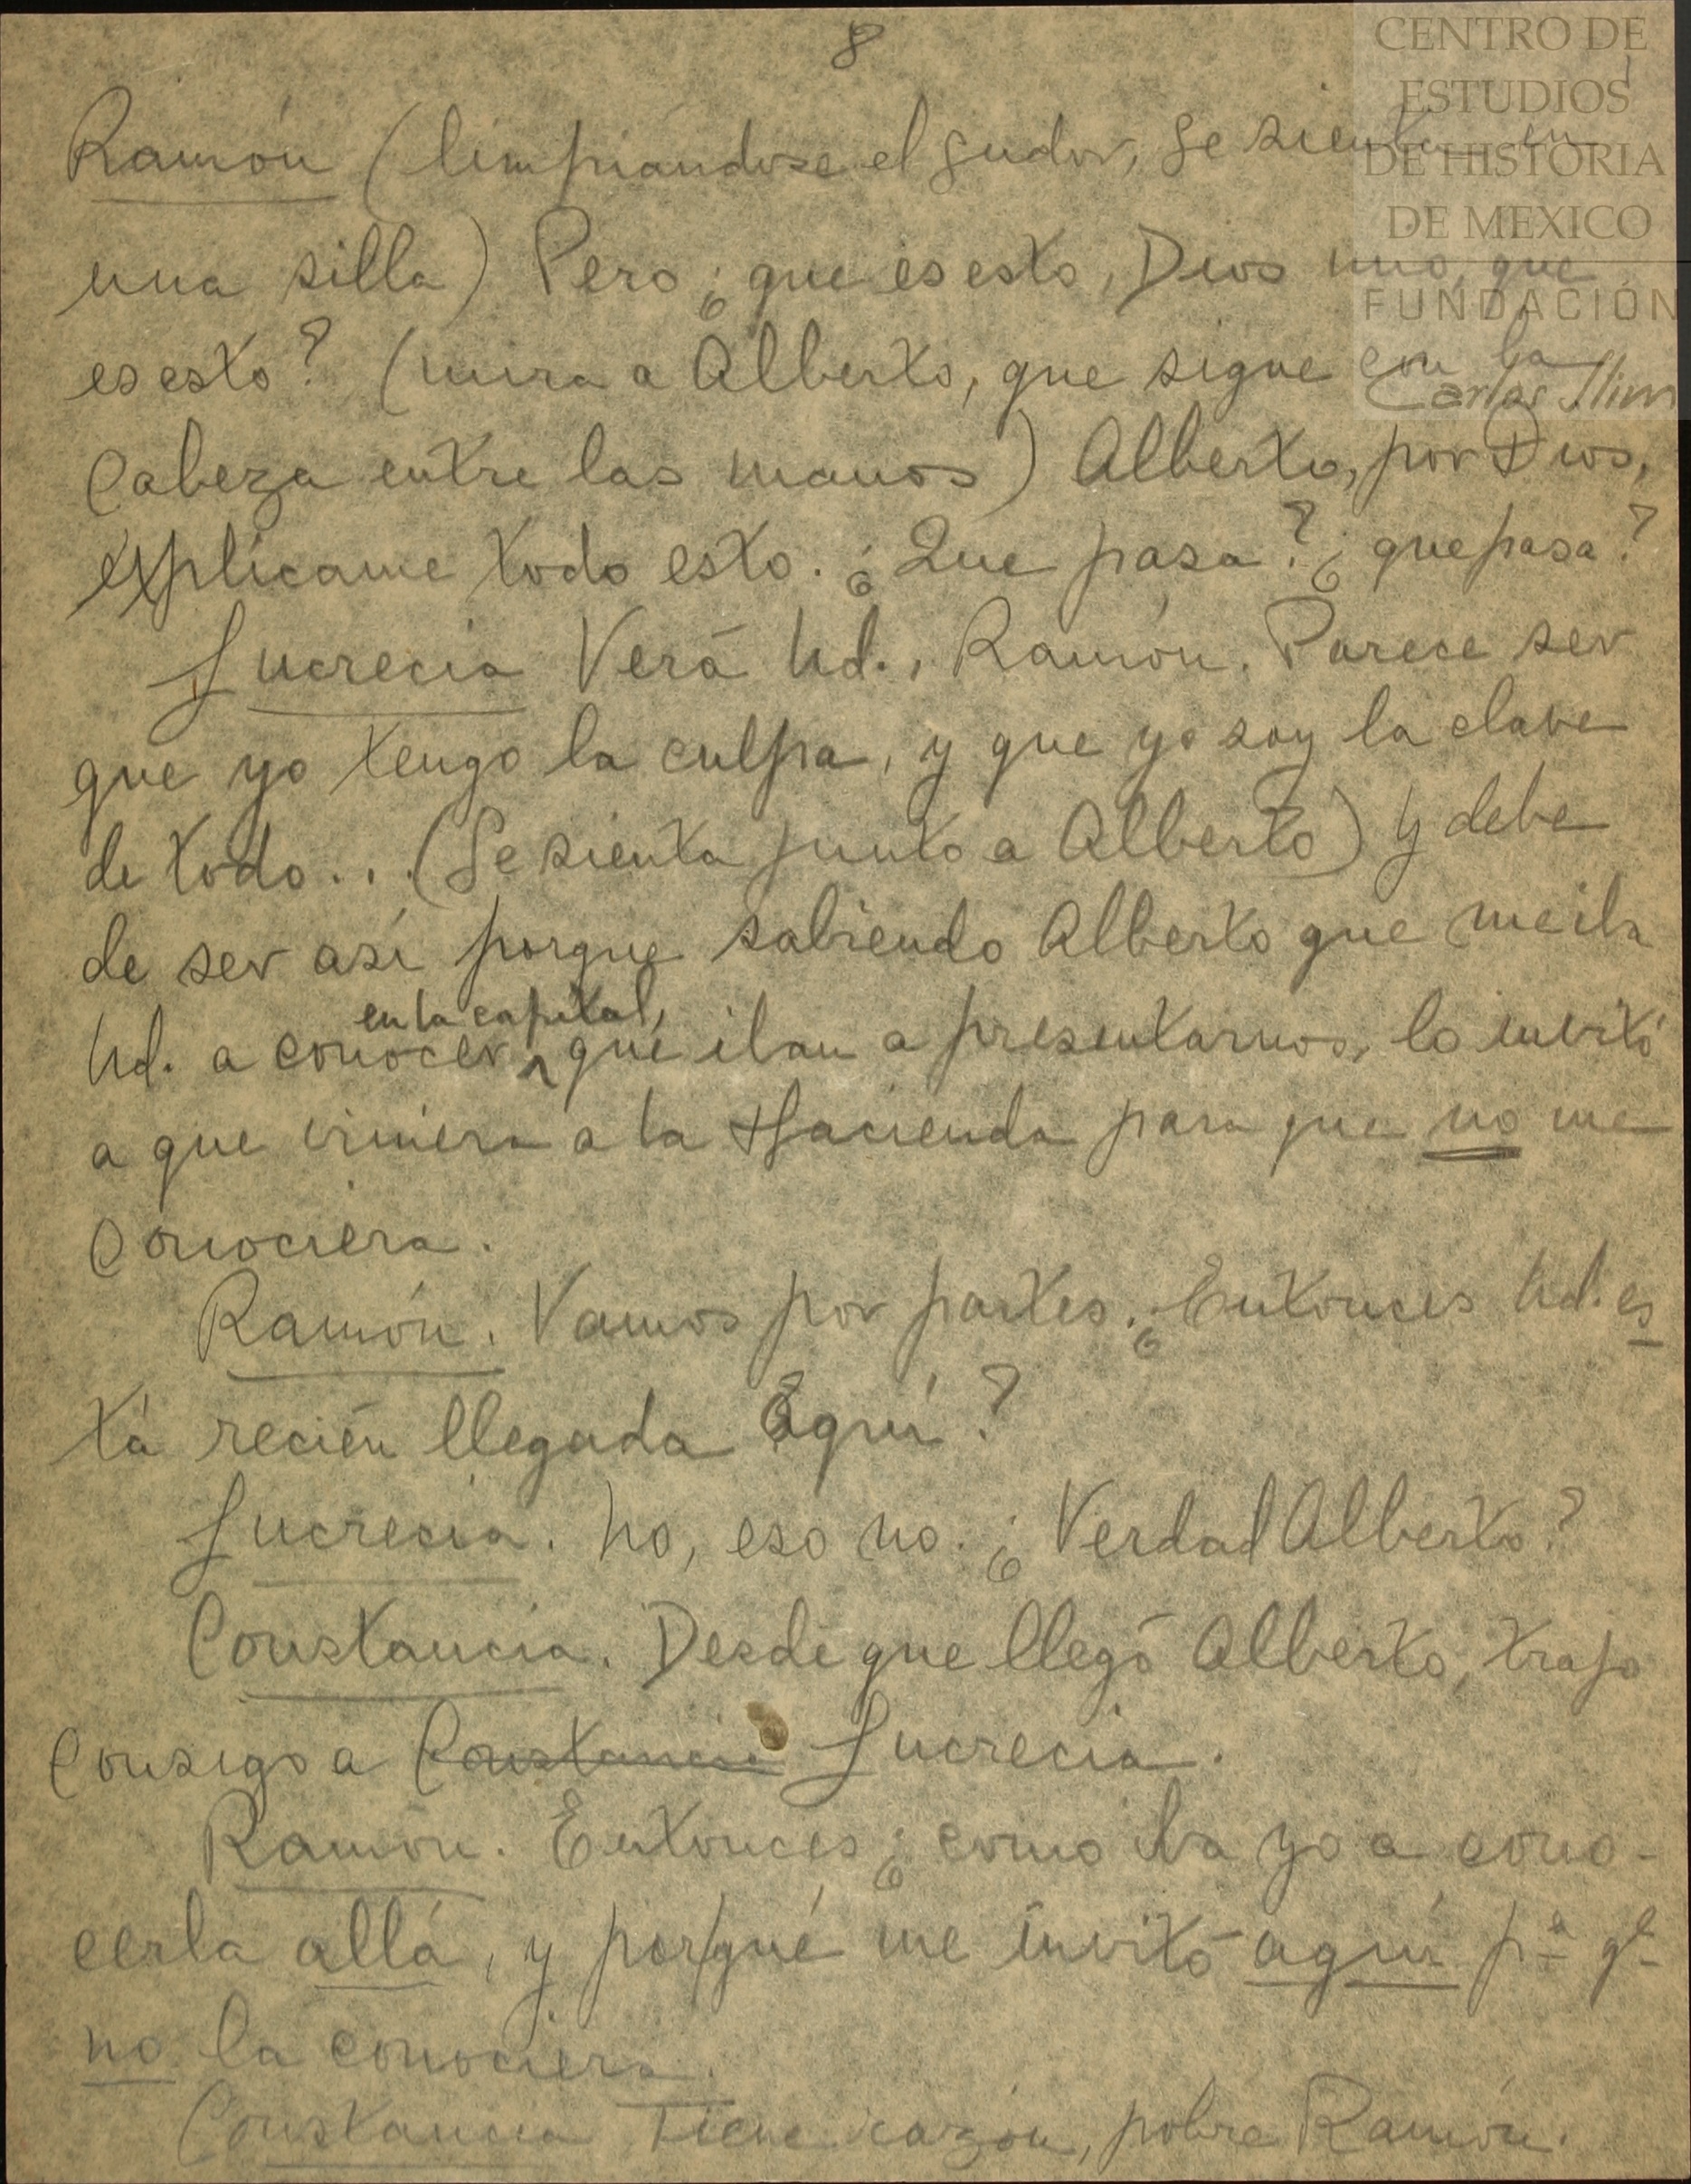 8
CENTRO DE
ESTUDIOS
DE HISTORIA
DE MEXICO
FUNDACIÓN
Carlos Slim
Ramón (limpiándose el sudor, se sienta en
una silla) Pero ¿que es esto, Dios mio, que
es esto? (mira a Alberto, que sigue con la
Cabeza entre las manos) Alberto, por Dios,
explícame todo esto. ¿Que pasa? ¿que pasa?
Lucrecia Verá Ud., Ramón. Parece ser
que yo tengo la culpa, y que yo soy la clave
de todo... (Se sienta junto a Alberto) y debe
de ser así porque sabiendo Alberto que me iba
en la capital,
Ud. a conocer que iban a presentarnos, lo invitó
a que viniera a la Hacienda para que no me
conociera.
Ramón. Vamos por partes. ¿Entonces Ud. es
tá recién llegada aquí?
Lucrecia. No, eso no. ¿Verdad Alberto?
Constancia. Desde que llegó Alberto, trajo
consigo a Constancia Lucrecia.
Ramón. Entonces ¿como iba yo a cono-
cerla allá, y por qué me invitó aquí pª qe
no la conociera.
Constancia Tiene razón, pobre Ramón.